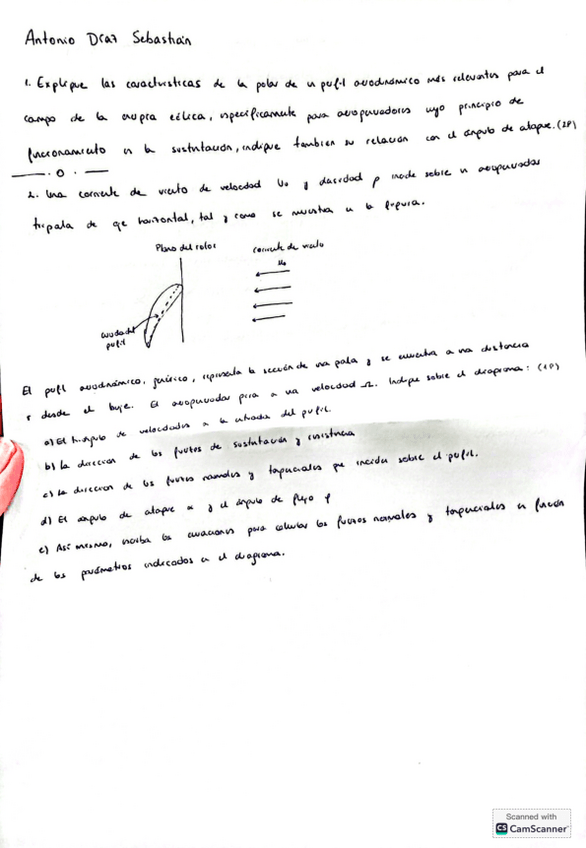 Antonio Díaz Sebastián
1. Explique las características de la polar de un perfil aerodinámico más relevantes para el
campo de la energía eólica, específicamente para aerogeneradores cuyo principio de
funcionamiento es la sustentación, indique también su relación con el ángulo de ataque. (2P)
2. Una corriente de viento de velocidad U₀ y densidad ρ incide sobre un aerogenerador
tripala de eje horizontal, tal y como se muestra en la figura.
Plano del rotor
corriente de viento
U₀
cuerda del
perfil
El perfil aerodinámico, genérico, representa la sección de una pala y se encuentra a una distancia
r desde el buje. El aerogenerador gira a una velocidad Ω. Indique sobre el diagrama: (1P)
a) El triángulo de velocidades a la entrada del perfil.
b) La dirección de las fuerzas de sustentación y resistencia
c) La dirección de las fuerzas normales y tangenciales que inciden sobre el perfil.
d) El ángulo de ataque α y el ángulo de flujo φ
e) Así mismo, escriba las ecuaciones para calcular las fuerzas normales y tangenciales en función
de los parámetros indicados en el diagrama.
Scanned with
CS CamScanner